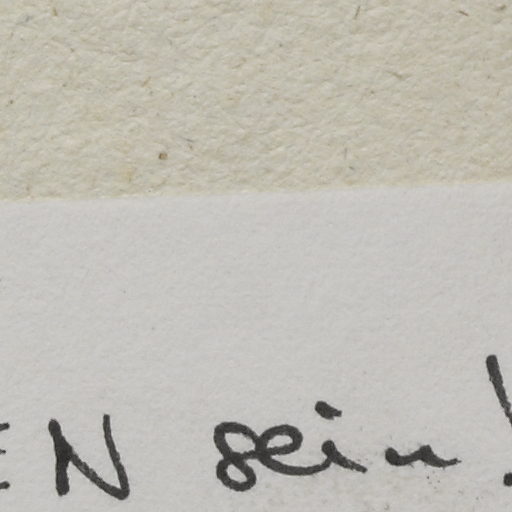 EN sein!